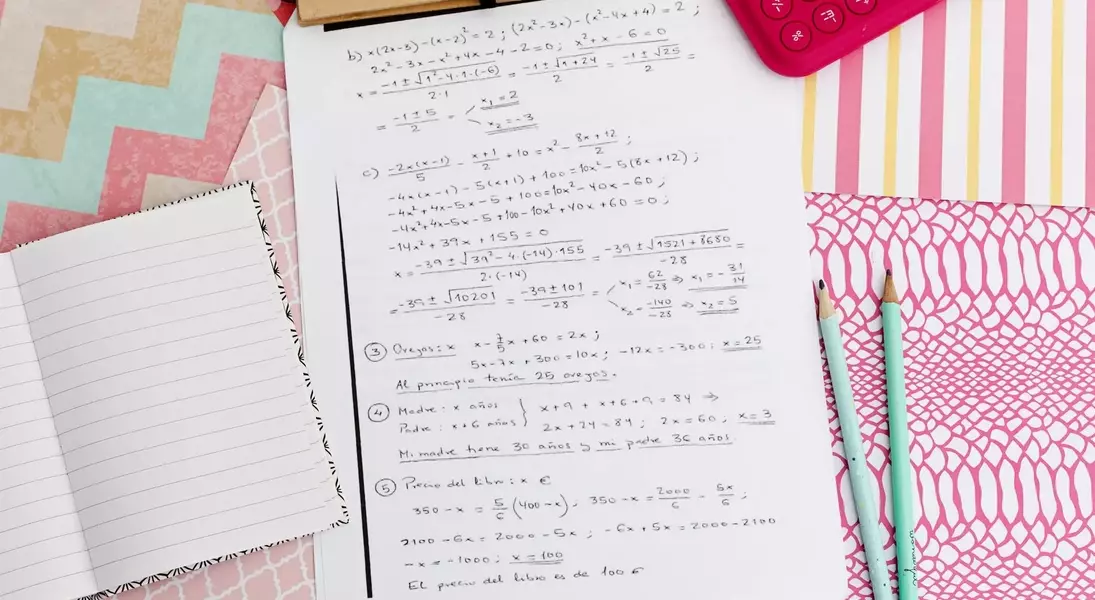 b) x(2x-3)-(x-2)²=2 ; (2x²-3x)-(x²-4x+4)=2 ;
2x²-3x-x²+4x-4-2=0 ; x²+x-6=0
x = (-1±√(1²-4·1·(-6)))/(2·1) = (-1±√(1+24))/2 = (-1±√25)/2 =
= (-1±5)/2 = x₁=2
x₂=-3
c) (-2x(x-1))/5 - (x+1)/2 + 10 = x² - (8x+12)/2 ;
-4x(x-1)-5(x+1)+100=10x²-5(8x+12) ;
-4x²+4x-5x-5+100=10x²-40x-60 ;
-4x²+4x-5x-5+100-10x²+40x+60=0 ;
-14x²+39x+155=0
x = (-39±√(39²-4·(-14)·155))/(2·(-14)) = (-39±√(1521+8680))/(-28) =
= (-39±√10201)/(-28) = (-39±101)/(-28) = x₁=62/(-28) ⇒ x₁=-31/14
x₂=(-140)/(-28) ⇒ x₂=5
③ Ovejas: x x-7/5x+60=2x ;
5x-7x+300=10x ; -12x=-300 ; x=25
Al principio tenía 25 ovejas.
④ Madre: x años } x+9+x+6+9=84 ⇒
Padre: x+6 años 2x+24=84 ; 2x=60 ; x=3
Mi madre tiene 30 años y mi padre 36 años.
⑤ Precio del libro: x €
350-x = 5/6(400-x) ; 350-x = 2000/6 - 5x/6 ;
2100-6x=2000-5x ; -6x+5x=2000-2100
-x=-1000 ; x=100
El precio del libro es de 100 €